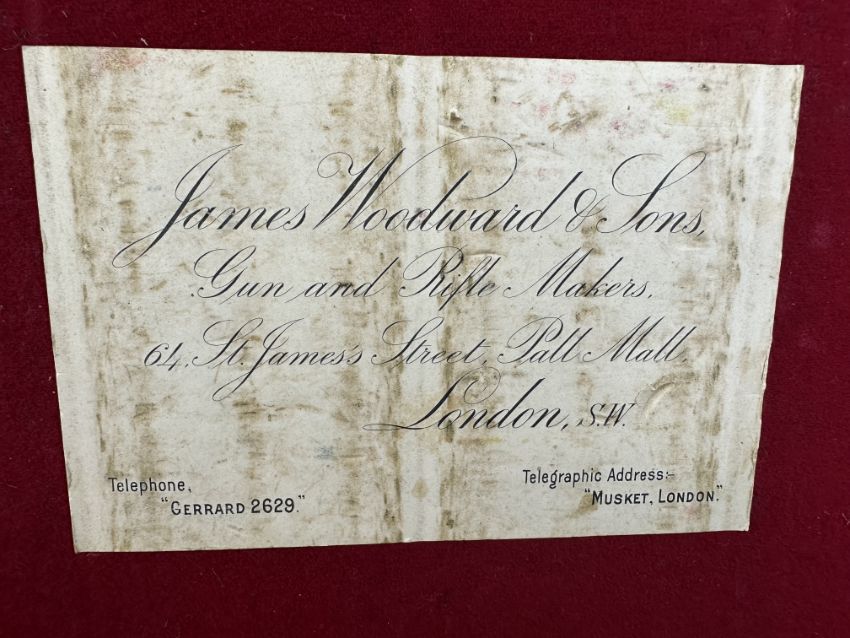 James Woodward & Sons,
Gun and Rifle Makers,
64, St. James's Street, Pall Mall,
London, S.W.
Telephone,
"GERRARD 2629."
Telegraphic Address:-
"MUSKET, LONDON."